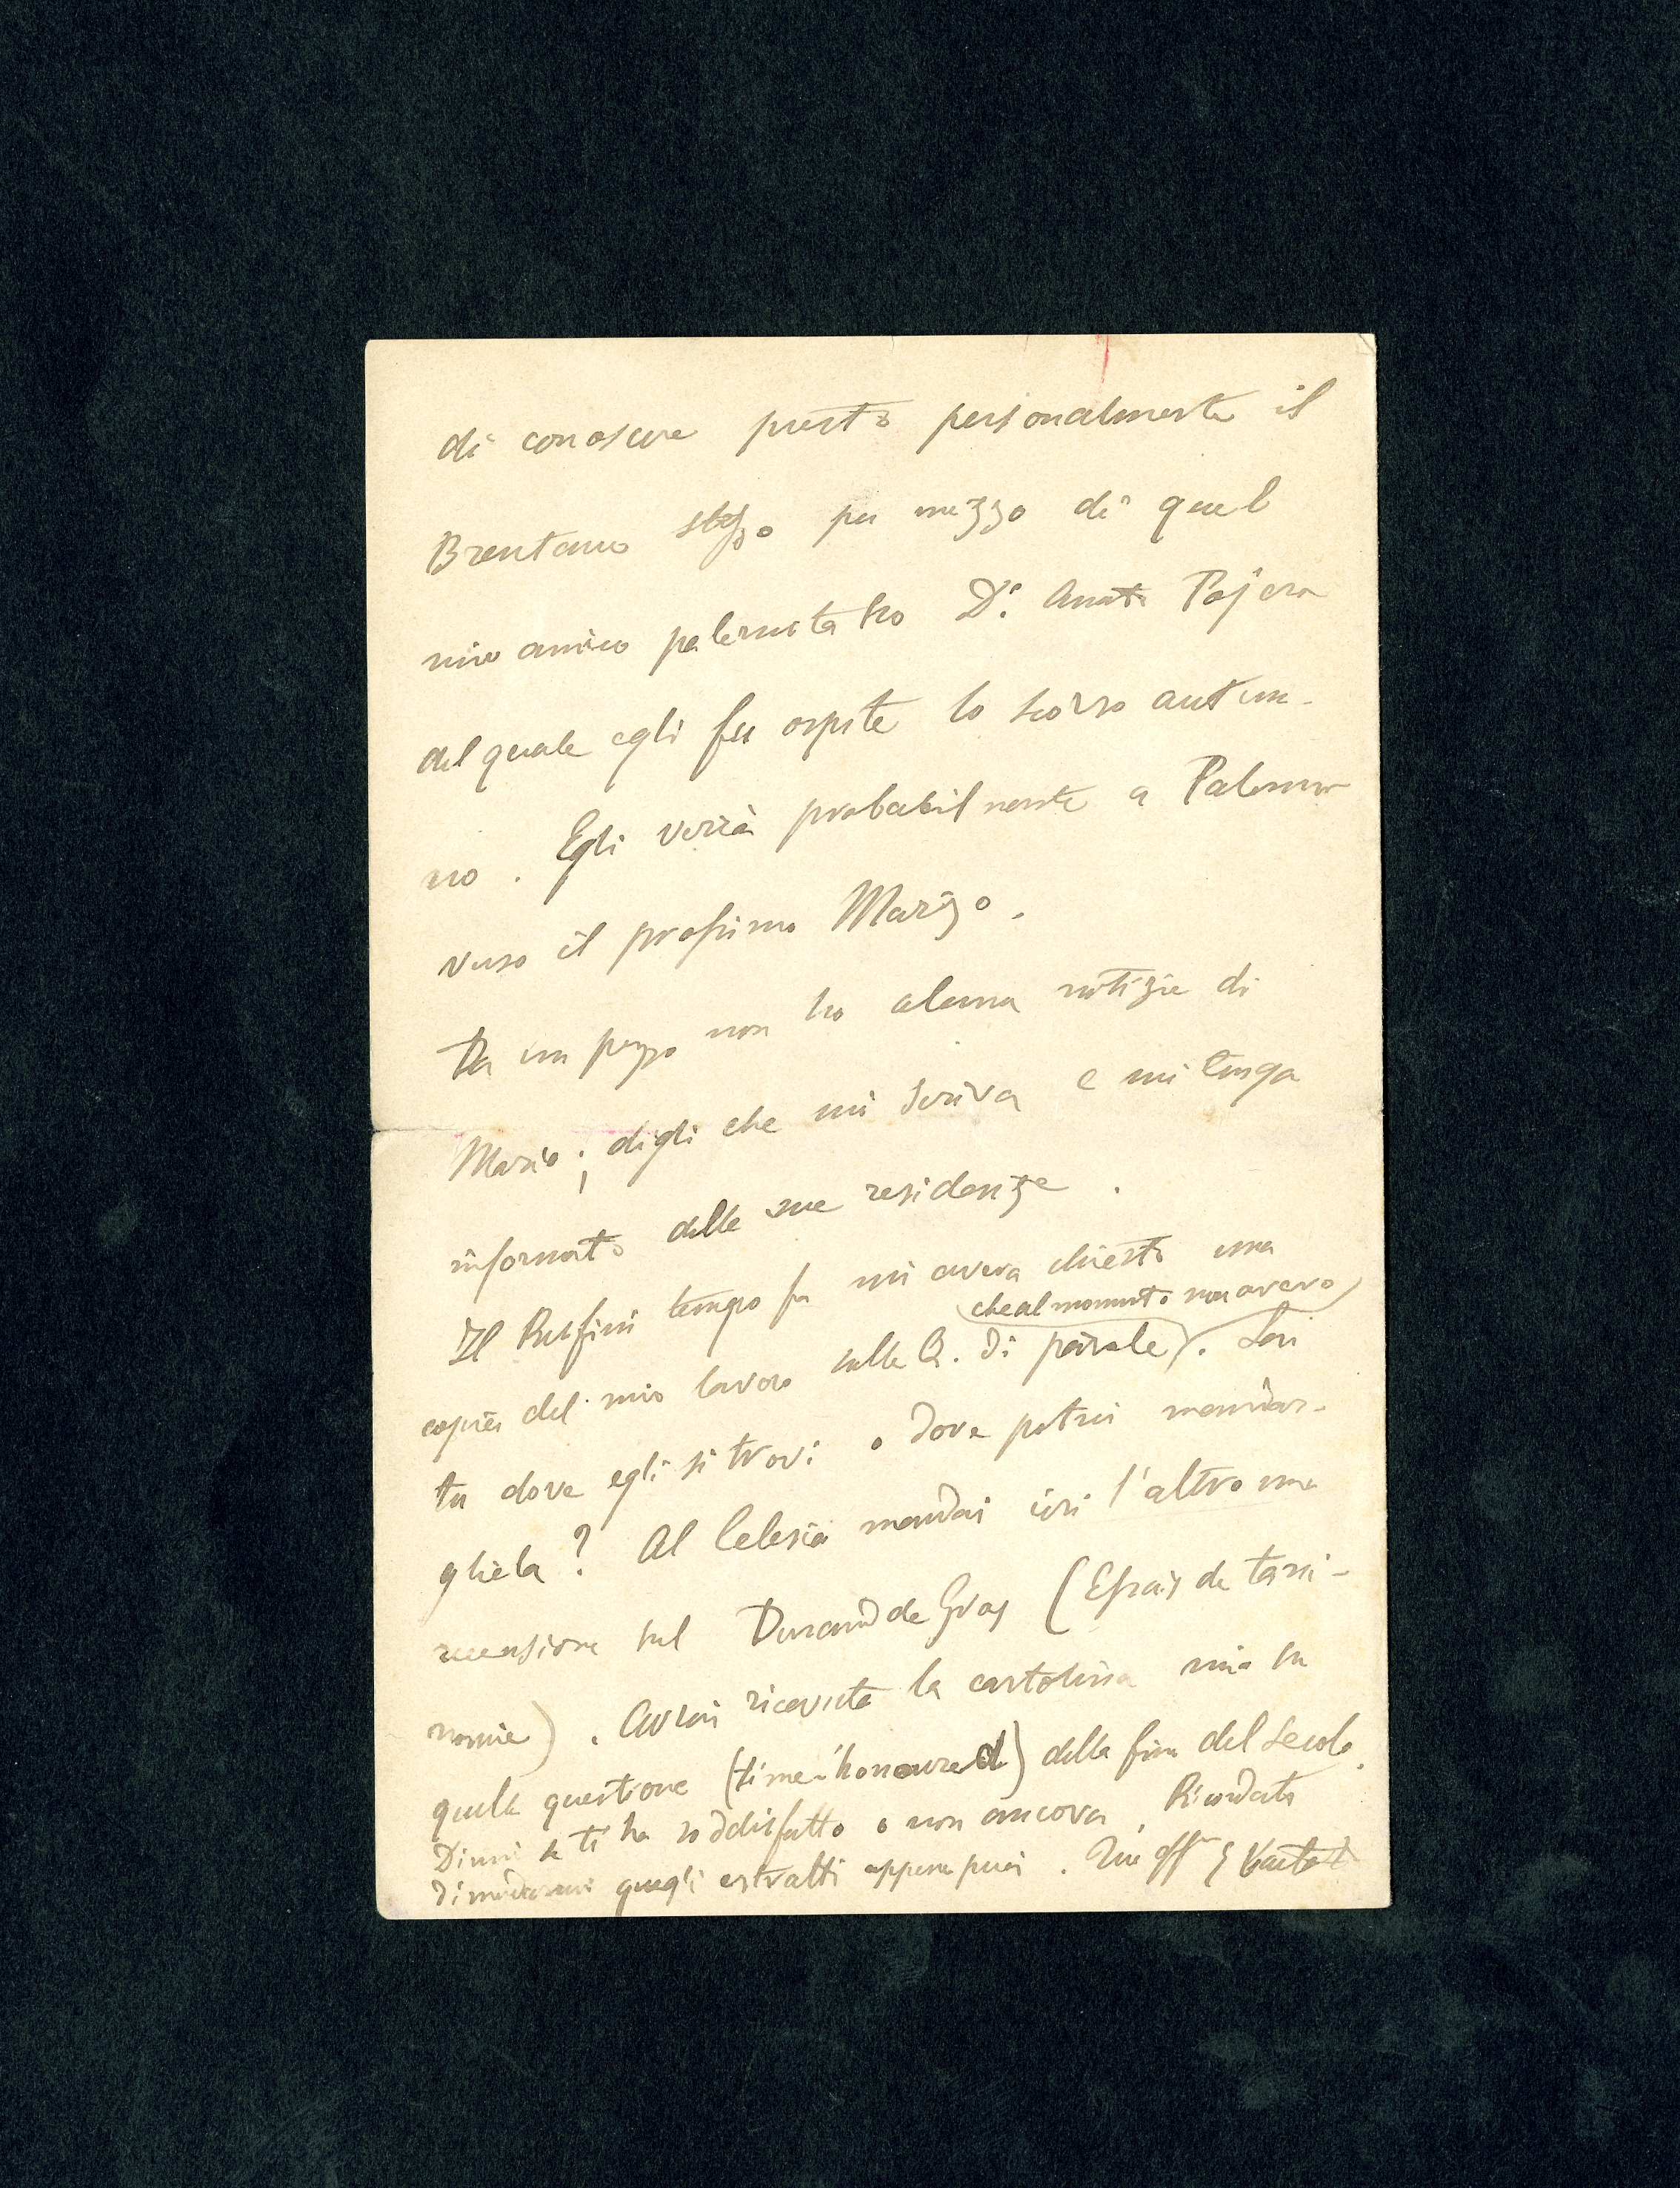 di conoscere presto personalmente il
Brentano stesso per mezzo di quel
mio amico palermitano Dr. Amato Pojero
del quale egli fu ospite lo scorso autun-
no. Egli verrà probabilmente a Palermo
verso il prossimo Marzo.
Da un pezzo non ho alcuna notizie di
Mario; digli che mi scriva e mi tenga
informato delle sue residenze.
Il tempo fa mi aveva chiesto una
copia del mio lavoro sulle Q. di parole (che al momento non avevo). Sai
tu dove egli si trovi o dove potrei mandar-
gliela? Al Celesia mandai ieri l'altro una
recensione sul Durand de Gros (Essais de taxi-
nomie). Avrai ricevuta la cartolina mia su
quella questione (time-honoured) della fine del secolo.
Dimmi se ti ha soddisfatto o non ancora. Ricordati
di mandarmi quegli estratti appena puoi. Tuo aff G Vailati